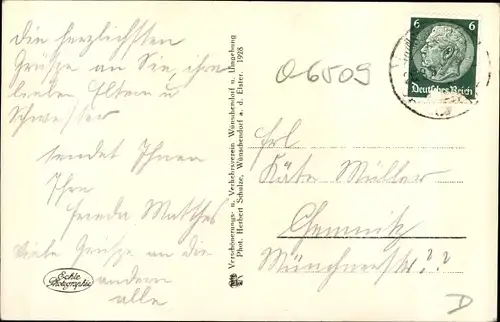 die herzlichsten
Grüsse an Sie, ihre
lieben Eltern u
Schwester
sendet Ihnen
Ihre
Frieda Matthes
Viele Grüsse an die
andern
alle
Echte
Photographie
Verschönerungs- u. Verkehrsverein Wünschendorf u. Umgebung
Phot. Herbert Schulze, Wünschendorf a. d. Elster. 1928
O6509
6 6
Deutsches Reich
Frl
Käte Müller
Chemnitz
Münchnerstr. ??
D